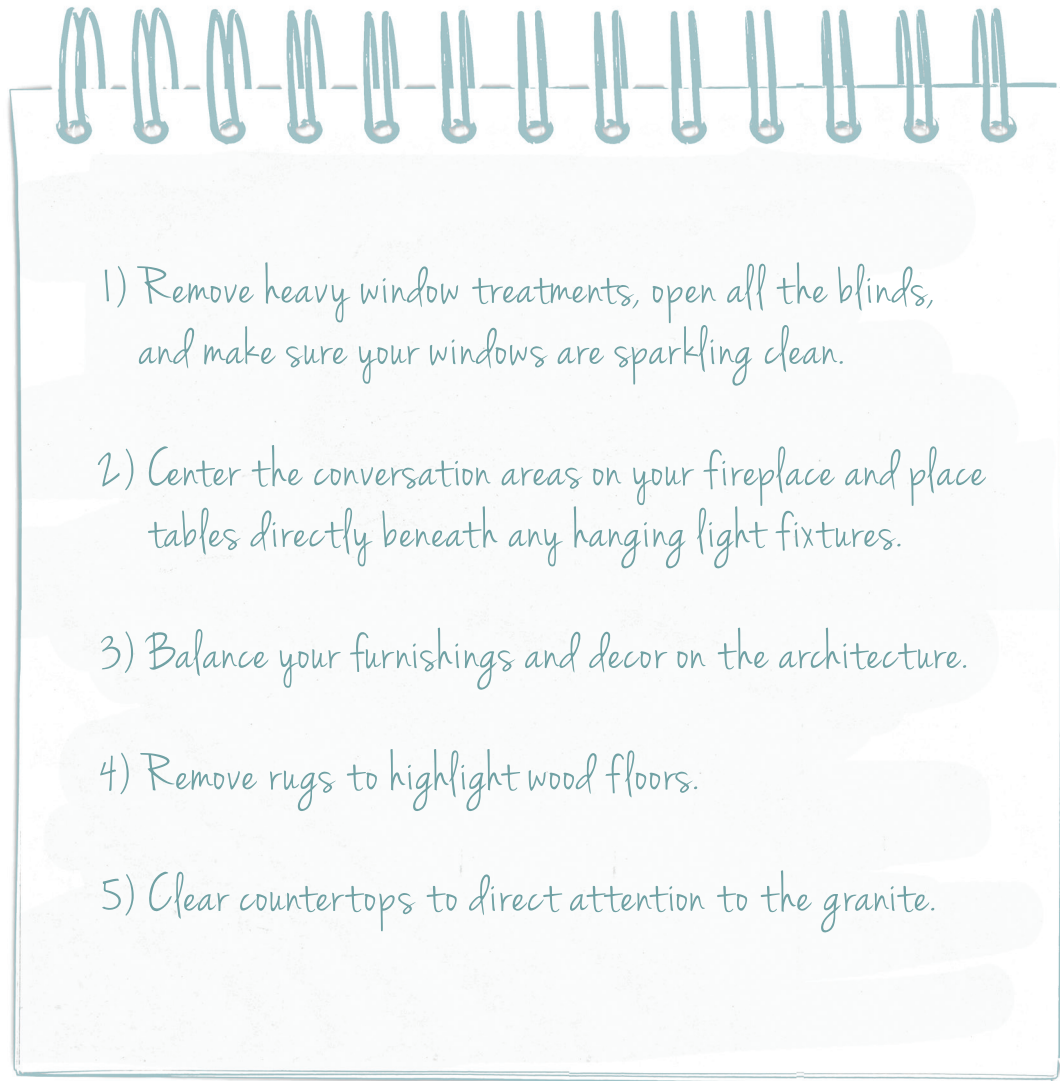 1) Remove heavy window treatments, open all the blinds,
and make sure your windows are sparkling clean.
2) Center the conversation areas on your fireplace and place
tables directly beneath any hanging light fixtures.
3) Balance your furnishings and decor on the architecture.
4) Remove rugs to highlight wood floors.
5) Clear countertops to direct attention to the granite.